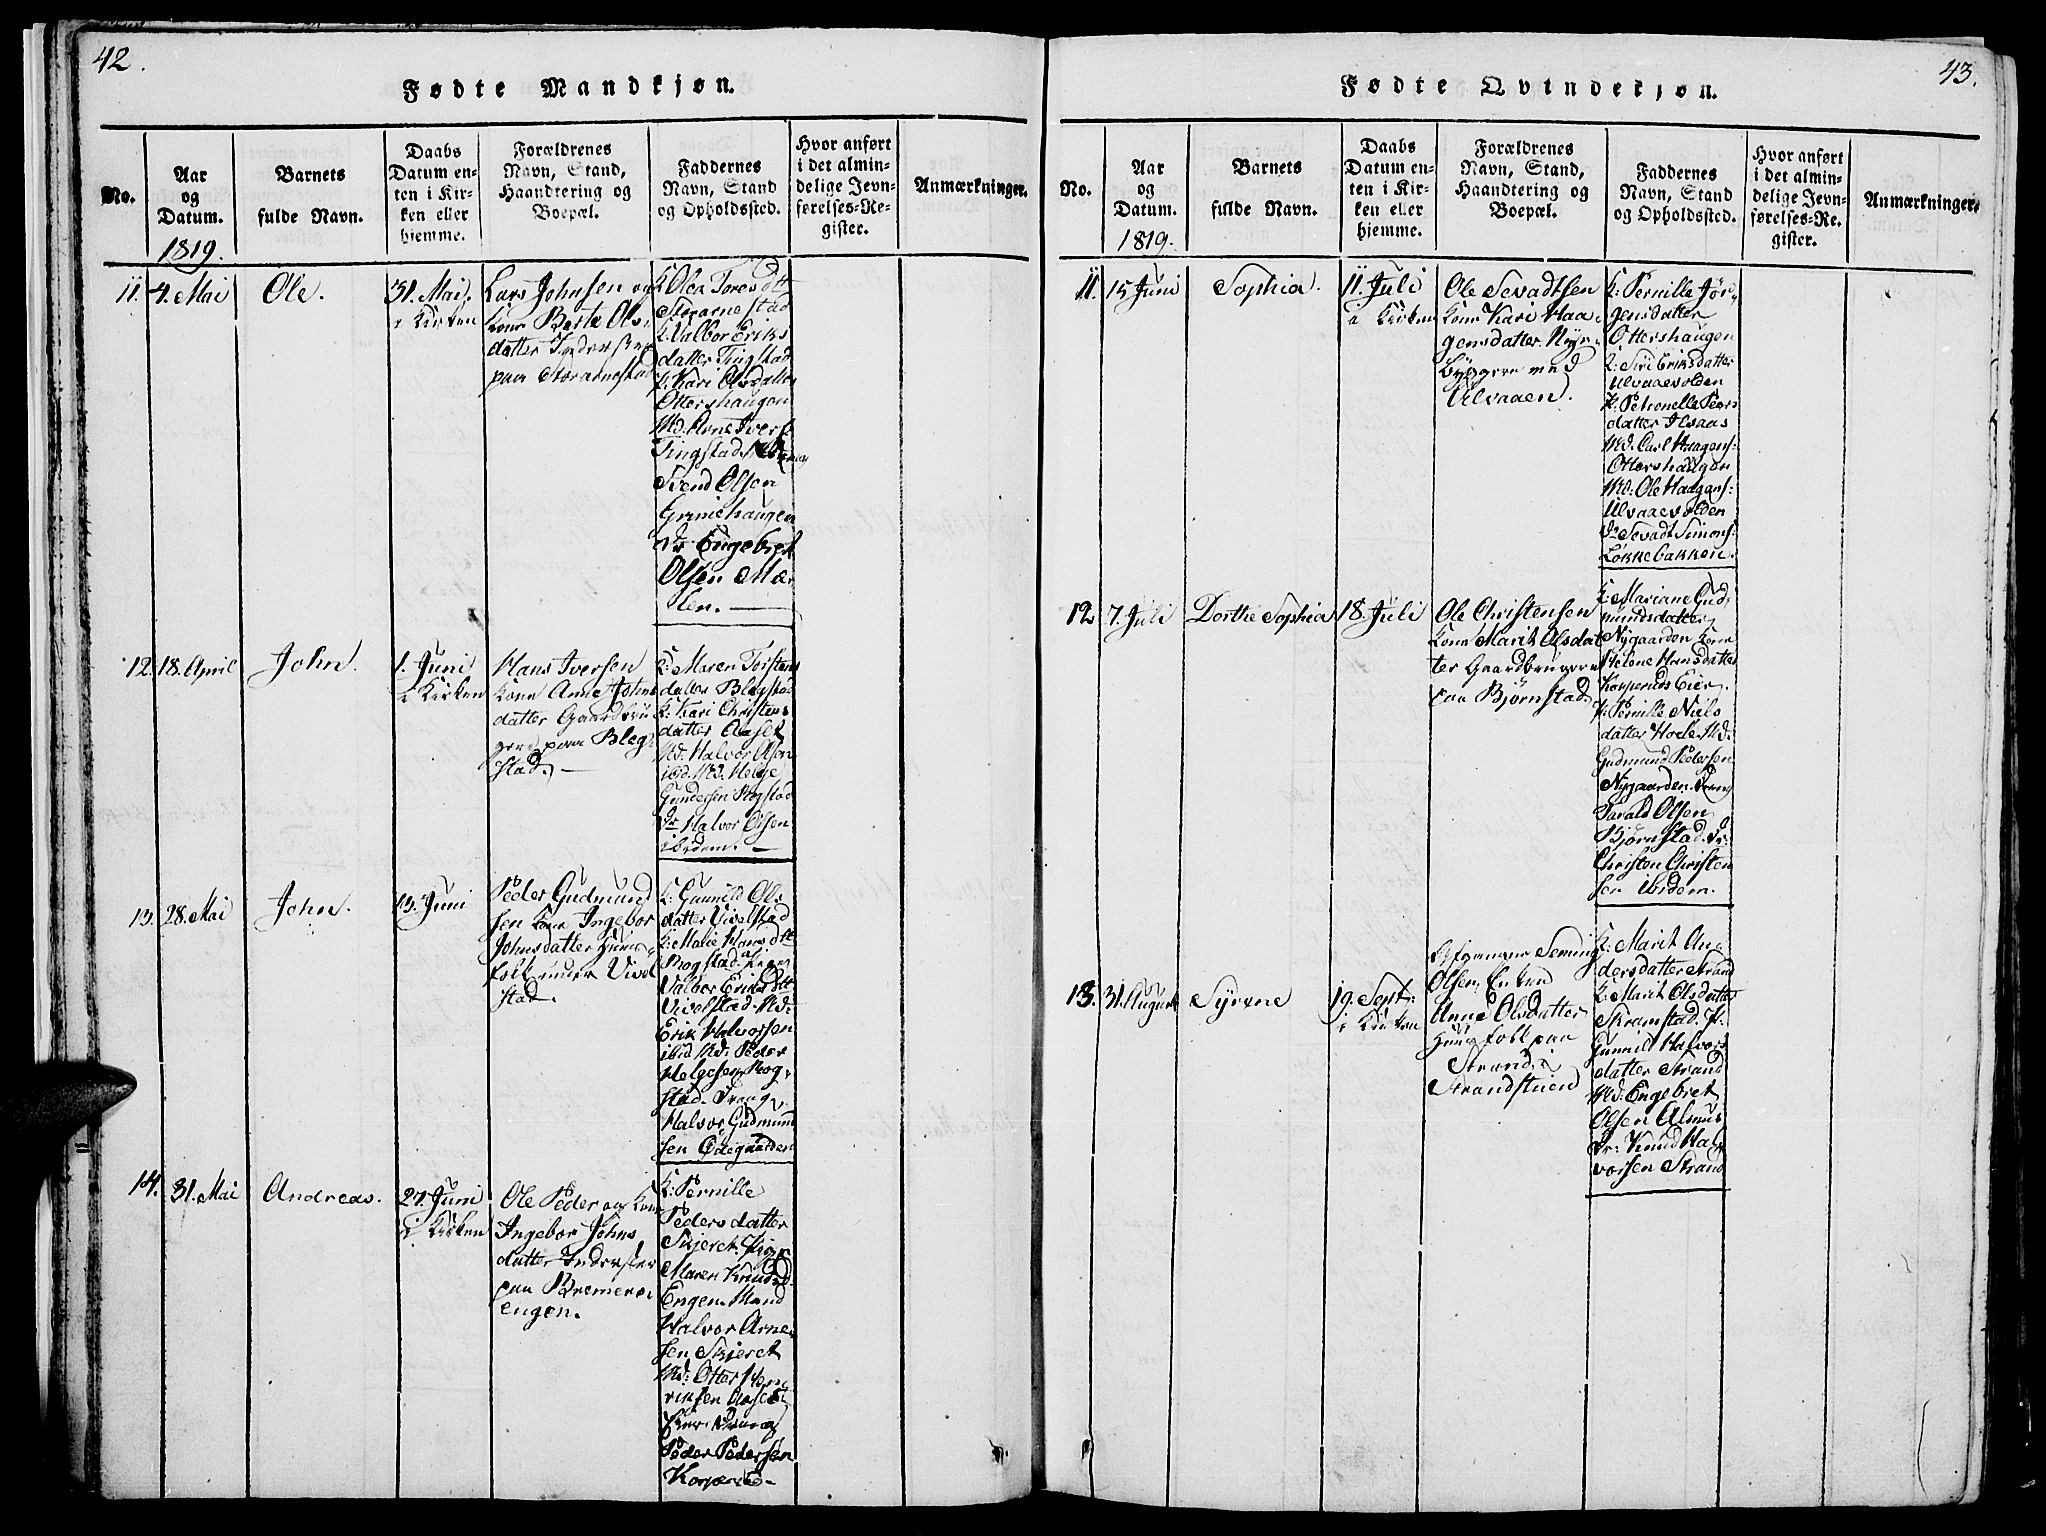 42.
Fødte Mandkjøn.
No.
Aar
og
Datum.
1819.
Barnets
fulde Navn.
Daabs
Datum en-
ten i Kir-
ken eller
hjemme.
Forældrenes
Navn, Stand,
Haandtering og
Boepæl.
Faddernes
Navn, Stand
og Opholdssted.
Hvor anført
i det almin-
delige Jevn-
førelses-Re-
gister.
Anmærkninger.
11.
4. Mai
Ole.
31. Mai.
i Kirken
Lars Johnsen og
Kone Berte Ols-
datter Inderster
paa Storarnestad
K. Olea Toresdtt
Storarnestad
K. Valbor Eriks
datter Tingstad
P. Kari Olsdatter
Ottershaugen
Md. Arne Ivers.
Tingstad.
Svend Olsen
Grinehaugen
Dr Engebret
Olsen Mæ-
len.
12.
18. April
John.
1. Juni
i Kirken
Hans Iversen
Kone Anne Johns
datter Gaardbru
gere paa Bleg-
stad.
K: Maren Torstens
datter Blegstad
K: Kari Christens
datter Aaset
Md. Halvor Olsen
ibid. Md. Helge
Gundersen Rogstad
Dr Halvor Olsen
ibidem.
13.
28. Mai
John.
13. Juni
Peder Gudmund
sen Kone Ingebor
Johnsdatter Huus-
folk under Vivel
stad.
K: Gunnild Ols
datter Vivelstad
K: Marie Hansdtt
Rogstad.
Valbor Eriksdtt
Vivelstad. Md:
Erik Halvorsen
ibid Md: Peder
Helgesen Rog-
stad. Dreng
Halvor Gudmund
sen Ødegaarden
14.
31. Mai
Andreas.
27. Juni
i Kirken
Ole Peder og Kone
Ingebor Johns
datter Inderster
paa Bremerer
engen.
K: Pernille
Pedersdatter
Skjeret. Pige
Maren Knudsd.
Engen. Mand
Halvor Arne-
sen Skjeret
Md: Otter Hen
riksen Aaset
Peder Pedersen
43.
Fødte Qvindekjøn.
No.
Aar
og
Datum.
1819.
Barnets
fulde Navn.
Daabs
Datum en-
ten i Kir-
ken eller
hjemme.
Forældrenes
Navn, Stand,
Haandtering og
Boepæl.
Faddernes
Navn, Stand
og Opholdssted.
Hvor anført
i det almin-
delige Jevn-
førelses-Re-
gister.
Anmærkninger.
11.
15 Juni
Sophia.
11. Juli
i Kirken
Ole Sevadtsen
Kone Kari Haa-
gensdatter Nye-
byggere ved
Ulvaaen.
K: Pernille Jør-
gensdatter
Ottershaugen
K: Siri Eriksdatter
Ulvaaevolden
P. Petronelle Peers
datter Ilsaas
Md. Carl Haagens:
Ottershaugen
Md: Ole Haagens:
Ulvaaevolden
Dr Sevadt Simons:
Løkkebakken.
12
7. Juli
Dorthe Sophia
18. Juli
Ole Christensen
Kone Marit Olsdat
ter Gaardbrugere
paa Bjørnstad.
K: Mariane Gud
mundsdatter
Nygaarden Kone
Helene Hansdatter
Kopperuds Eier.
P. Pernille Niels
datter Hoele. Md.
Gudmund Pedersen
Nygaarden. Dreng
Harald Olsen
Bjørnstad. Dr:
Christen Christen
sen ibidem.
13.
31. August
Syrene
19. Sept:
i Kirken
Afgangne Seming
Olsen, Enken
Anne Olsdatter
Huusfolk paa
Strand i
Strandstuen
K: Marit An-
dersdatter Strand
K: Marit Olsdatter
Skramstad. P.
Gunnild Halvors
datter Strand
Md: Engebret
Olsen Alme
Dr: Knud Hal
vorsen Strand